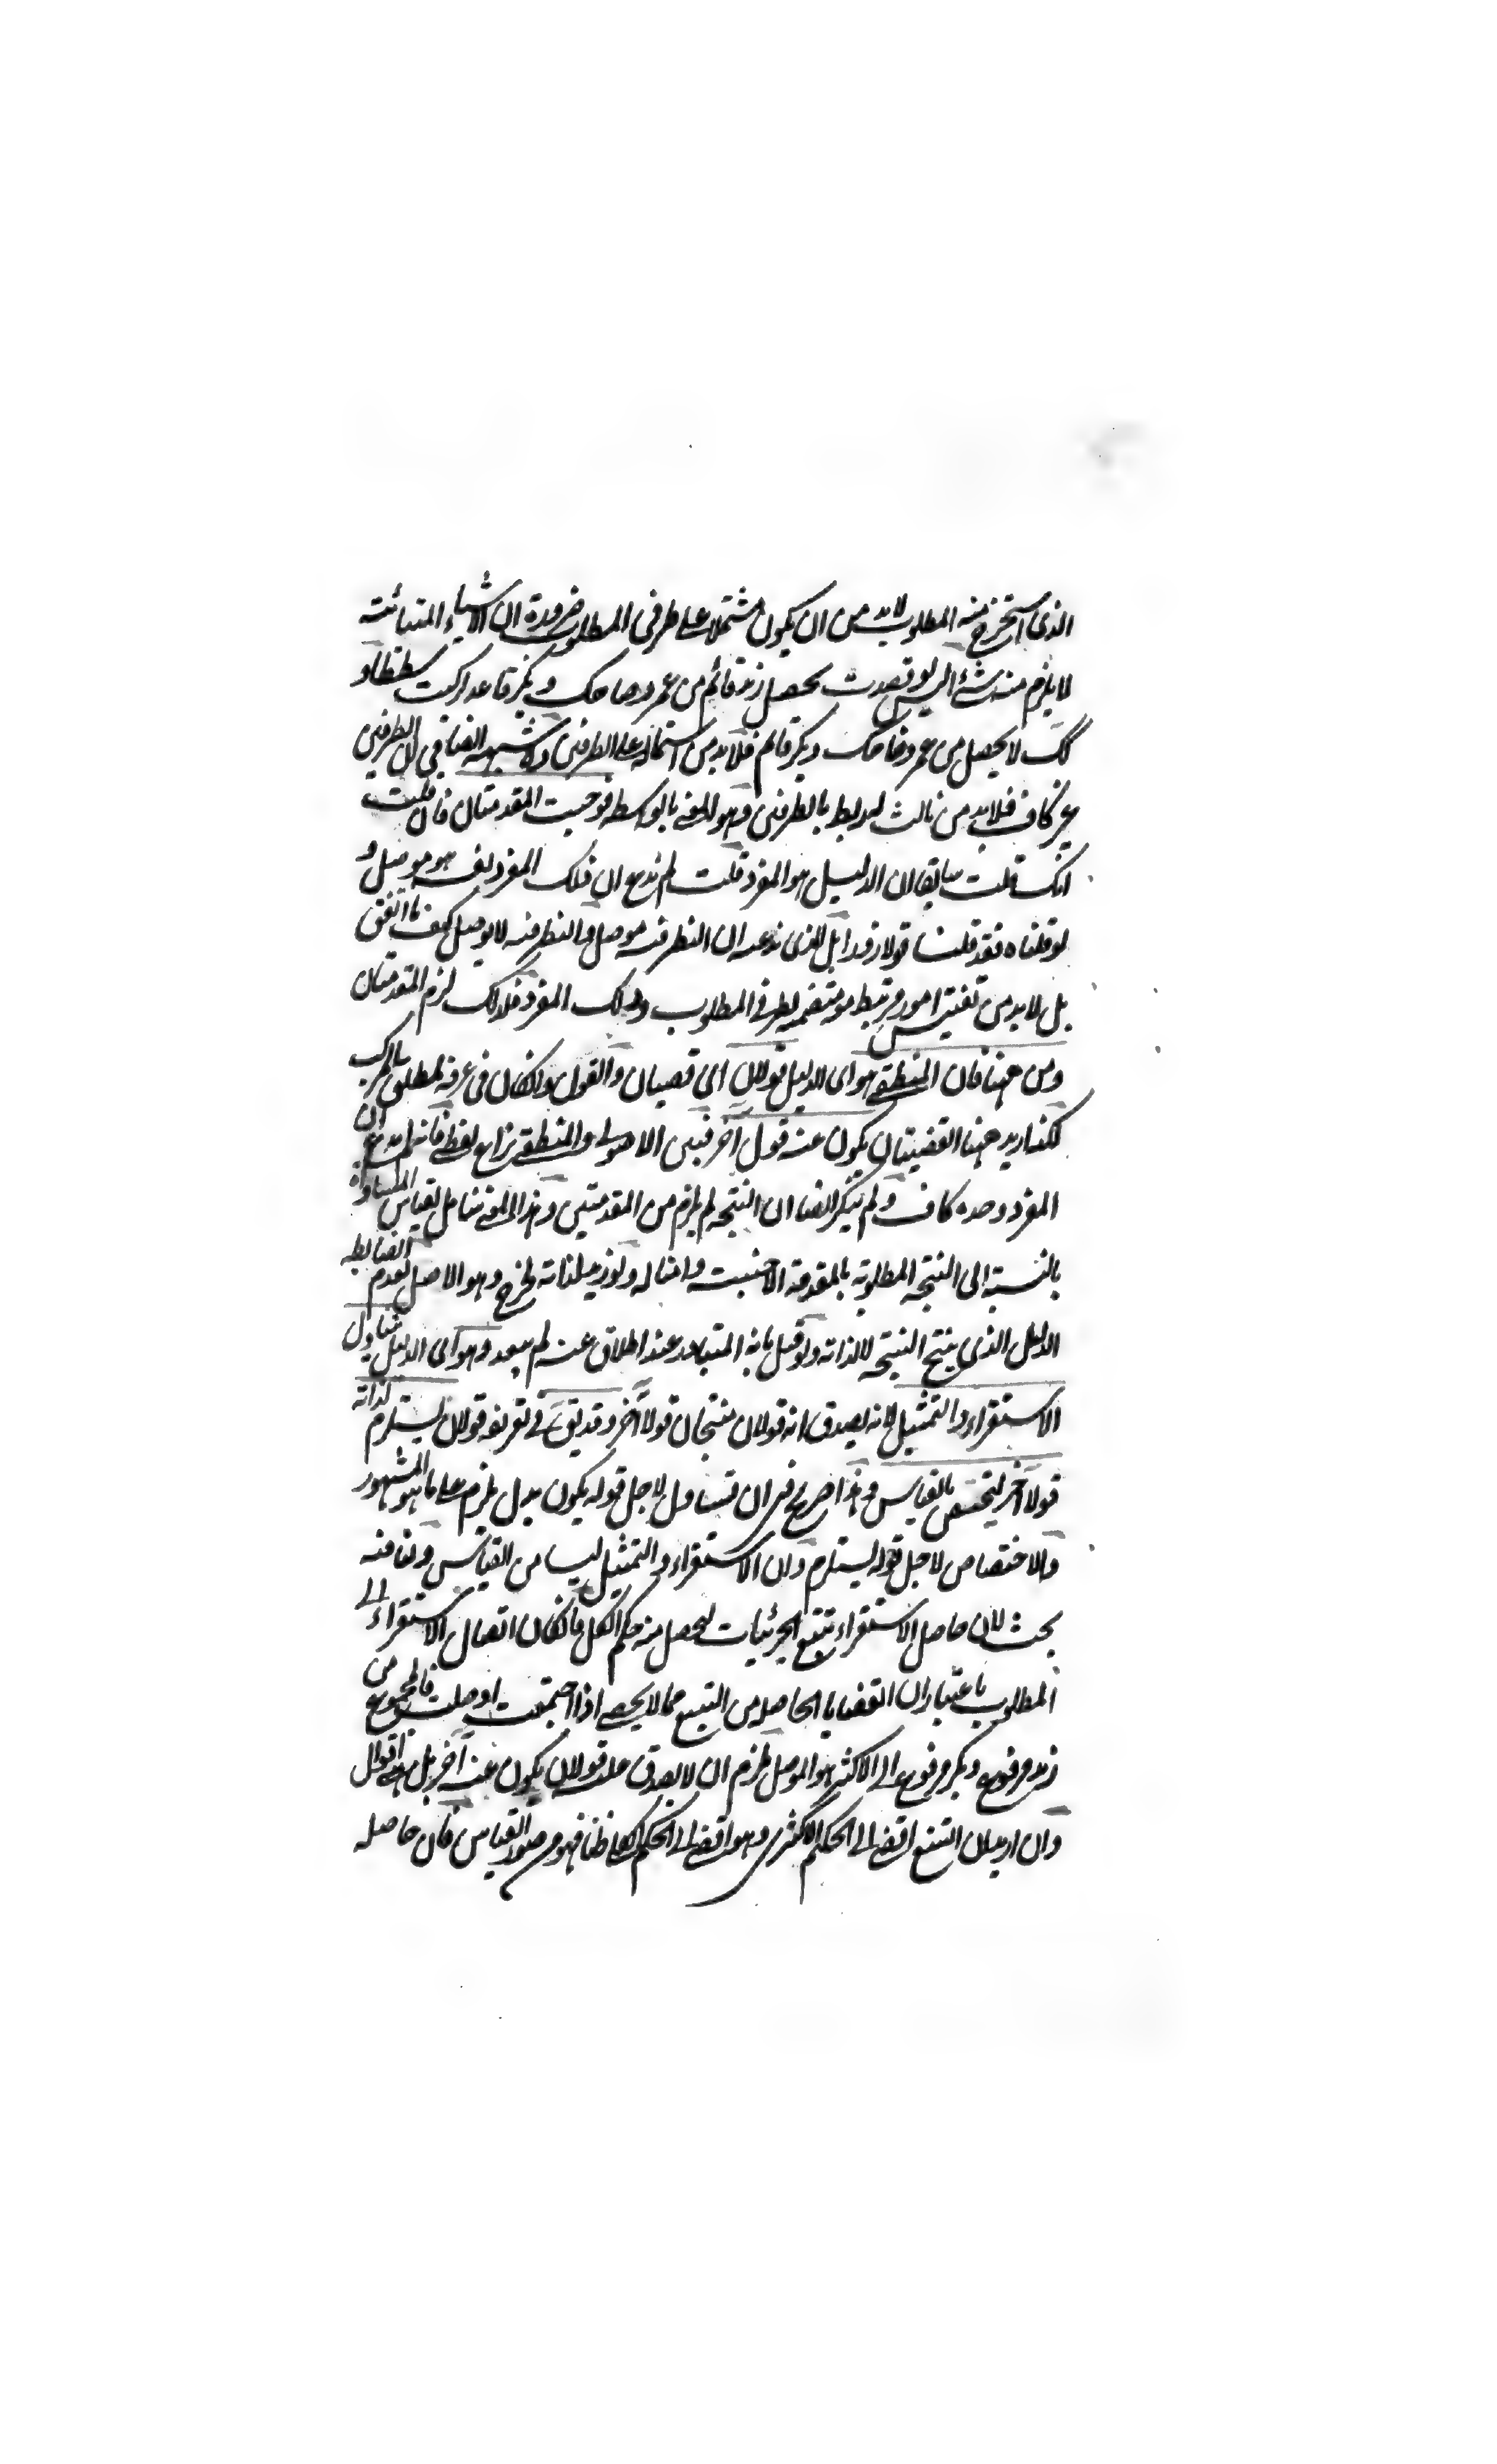 الذى استخرج منه المطلوب لابد من ان يكون مشتملا على طرفى المطلوب ضرورة ان الاشياء المتبائنة
لا يلزم منه شئ اليس لو قصدت تحصل زيد قائم من عمرو ضاحك وبكر قاعد لركبت شططا و
كك لا يحصل من عمرو ضاحك وبكر قائم فلا بد من اشتماله على الطرفين ولا شبهة ايضا فى ان الطرفين
غير كاف فلا بد من ثالث ليربط بالطرفين وهو المعنى بالوسط فوجبت المقدمتان فان قلت
انك قلت سابقا ان الدليل هو المفرد قلت لم ندع ان ذلك المفرد نفسه هو موصل و
لو قلناه فقد قلنا قولا زورا بل الذى ندعيه ان النظر فيه موصل والنظر فيه لا يوصل كيف ما اتفق
بل لا بد من تفتيش امور مرتبطة متضمنة لطرفى المطلوب وذلك المفرد فلذلك لزم المقدمتان
ومن ههنا قال المنطقى هو اى الدليل قولان اى قضيتان والقول وان كان فى عرفه لمطلق المركب
لكنه اريد ههنا القضيتان يكون عنه قول آخر فبين الاصولى والمنطقى نزاع لفظى فانه لم يدع ان
المفرد وحده كاف ولم ينكر ايضا ان النتيجة لم يلزم من المقدمتين وهذا المعنى شامل لقياس المساواة
بالنسبة الى النتيجة المطلوبة بالمقدمة الاجنبية وامثاله ولو زيد لذاته لخرج وهو الاصل لعدم الضابطة
الدليل الذى ينتج النتيجة لا لذاته ولو قيل بانه المتبادر عند اطلاق عنه لم يبعد وهو اى الدليل يتناول
الاستقراء والتمثيل لانه يصدق انه قولان ينتجان قولا آخر وقد يق فى تعريفه قولان يستلزم لذاته
قولا آخر ليختص بالقياس وهذا صريح فى ان تناول لاجل قوله يكون بدل يلزم على ما هو المشهور
والاختصاص لاجل قوله يستلزم وان الاستقراء والتمثيل ليسا من القياس ولنا فيه
بحث لان حاصل الاستقراء تتبع الجزئيات ليحصل منه حكم الكل فان كان اتصال الاستقراء الى
المطلوب باعتبار ان القضايا الحاصله من التتبع مما لا يحصى اذا اجتمعت اوصلت فالمجموع من
زيد مرفوع وبكر مرفوع الى الاكثر هو الموصل يلزم ان لا يصدق عليه قولان يكون عنه آخر بل هى اقوال
وان اريد ان التتبع افضى الى الحكم الاكثرى وهو افضى الى الحكم الكلى ظنا فهو من صور القياس فان حاصله